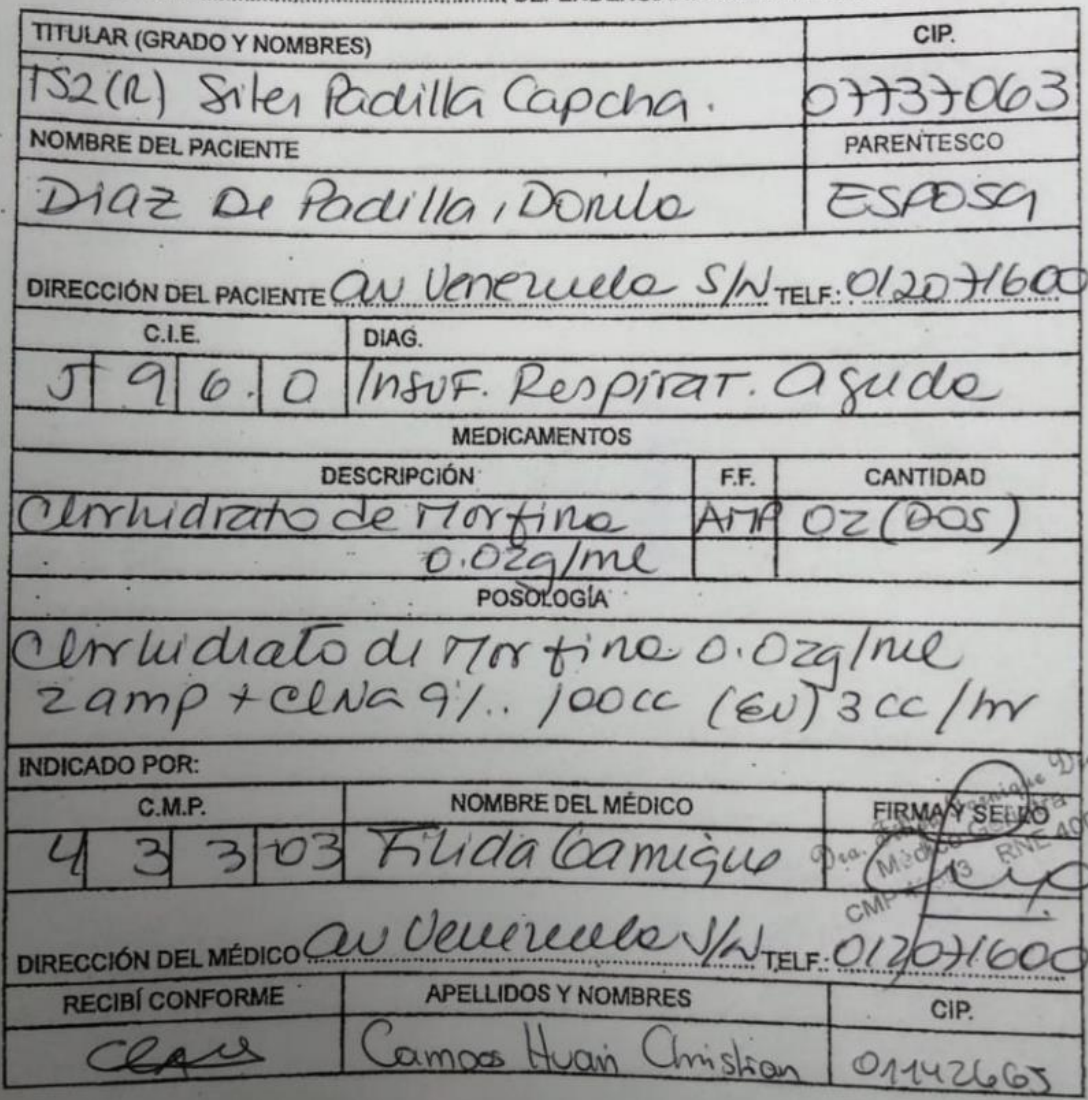 TITULAR (GRADO Y NOMBRES) CIP.
TS2(R) Siles Padilla Capcha. 07737063
NOMBRE DEL PACIENTE PARENTESCO
Diaz De Padilla, Donila ESPOSA
DIRECCIÓN DEL PACIENTE av Venezuela S/N TELF.: 012071600
C.I.E. DIAG.
J 9 6. 0 Insuf. Respirat. aguda
MEDICAMENTOS
DESCRIPCIÓN F.F. CANTIDAD
Clorhidrato de Morfina AMP 02 (DOS)
0.02g/ml
POSOLOGÍA
Clorhidrato de Morfina 0.02g/ml
2 amp + ClNa 9%.. 100cc (EV) 3cc/hr
INDICADO POR:
C.M.P. NOMBRE DEL MÉDICO FIRMA Y SELLO
4 3 3 03 Filida Gamique
Dra.
CMP RNE
DIRECCIÓN DEL MÉDICO av Venezuela S/N TELF.: 012071600
RECIBÍ CONFORME APELLIDOS Y NOMBRES CIP.
Campos Huari Christian 01142665